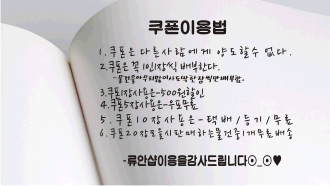 쿠폰이용법
1. 쿠폰은 다른사람에게 양도할수 없다.
2. 쿠폰은 꼭 1인1장씩 배부한다.
3. 쿠폰1장사용은-500원할인
4. 쿠폰5장사용은-우표무료
5. 쿠폰10장사용은-택배/등기/무료
6. 쿠폰20장모을시판매하는물건중1개무료배송
-류안샵이용을감사드립니다⊙_⊙♥